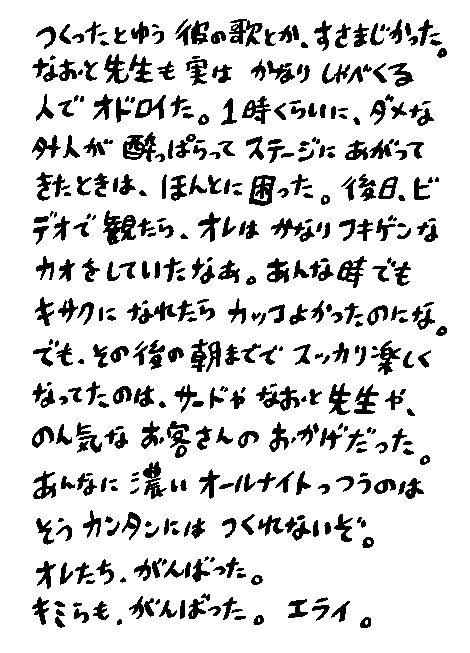 つくったとゆう 彼の歌とか、すさまじかった。
なおと先生も 実は かなり しゃべくる
人で オドロイた。1時くらいに、ダメな
外人が 酔っぱらって ステージに あがって
きたときは、ほんとに困った。後日、ビ
デオで 観たら、オレは かなり フキゲンな
カオをしていたなあ。あんな時でも
キサクに なれたら カッコよかったのにな。
でも、その後の朝までで スッカリ楽しく
なってたのは、サードや なおと先生や、
のん気な お客さんの おかげだった。
あんなに 濃い オールナイトっつうのは
そう カンタンには つくれないぞ。
オレたち、がんばった。
キミらも、がんばった。 エライ。